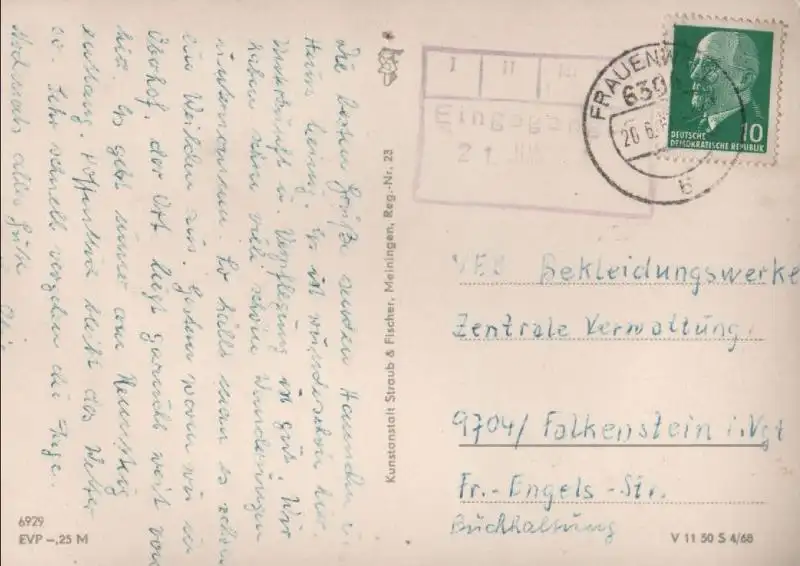 Die besten Grüße senden
Haus Er ist wunderschön hier.
Unterkunft u. Verpflegung ist gut. Wir
haben schon viele schöne Wanderungen
unternommen. So hält man es schon
ein Weilchen aus. Gestern waren wir in
Oberhof, der Ort liegt garnicht weit von
hier. Es geht immer am Rennsteig
entlang. Hoffentlich bleibt das Wetter
so. Sehr schnell vergehen die Tage.
Nochmals alles Gute
6929
EVP -,25 M
Kunstanstalt Straub & Fischer, Meiningen, Reg.-Nr. 23
I II III
Eingegangen
21. JUNI
FRAUENWALD
6309
20.6.
b
DEUTSCHE
DEMOKRATISCHE REPUBLIK
10
VEB Bekleidungswerke
Zentrale Verwaltung
9704/ Falkenstein i. Vgt
Fr.-Engels-Str.
Buchhaltung
V 11 50 S 4/68